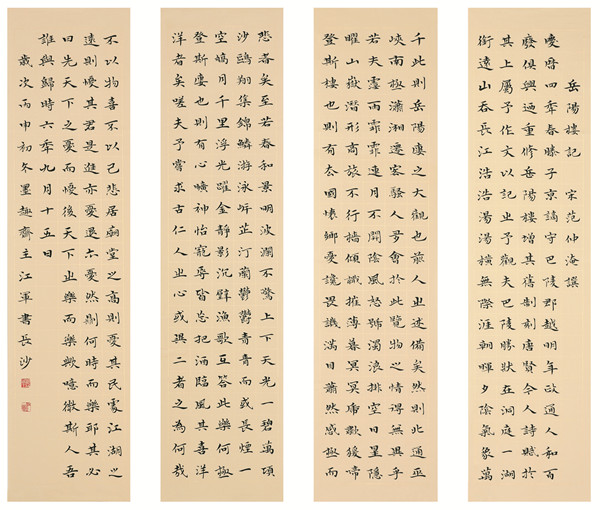 岳陽樓記 宋范仲淹譔
慶曆四年春滕子京謫守巴陵郡越明年政通人和百
廢俱興迺重修岳陽樓增其舊制刻唐賢今人詩賦於
其上屬予作文以記之予觀夫巴陵勝狀在洞庭一湖
銜遠山吞長江浩浩湯湯橫無際涯朝暉夕陰氣象萬
千此則岳陽樓之大觀也前人之述備矣然則北通巫
峽南極瀟湘遷客騷人多會於此覽物之情得無異乎
若夫霪雨霏霏連月不開陰風怒號濁浪排空日星隱
曜山嶽潛形商旅不行檣傾楫摧薄暮冥冥虎嘯猿啼
登斯樓也則有去國懷鄉憂讒畏譏滿目蕭然感極而
悲者矣至若春和景明波瀾不驚上下天光一碧萬頃
沙鷗翔集錦鱗游泳岸芷汀蘭郁郁青青而或長煙一
空皓月千里浮光躍金靜影沉璧漁歌互答此樂何極
登斯樓也則有心曠神怡寵辱皆忘把酒臨風其喜洋
洋者矣嗟夫予嘗求古仁人之心或異二者之為何哉
不以物喜不以己悲居廟堂之高則憂其民處江湖之
遠則憂其君是進亦憂退亦憂然則何時而樂耶其必
曰先天下之憂而憂後天下之樂而樂歟噫微斯人吾
誰與歸時六年九月十五日
歲次丙申初冬墨趣齋主江軍書長沙